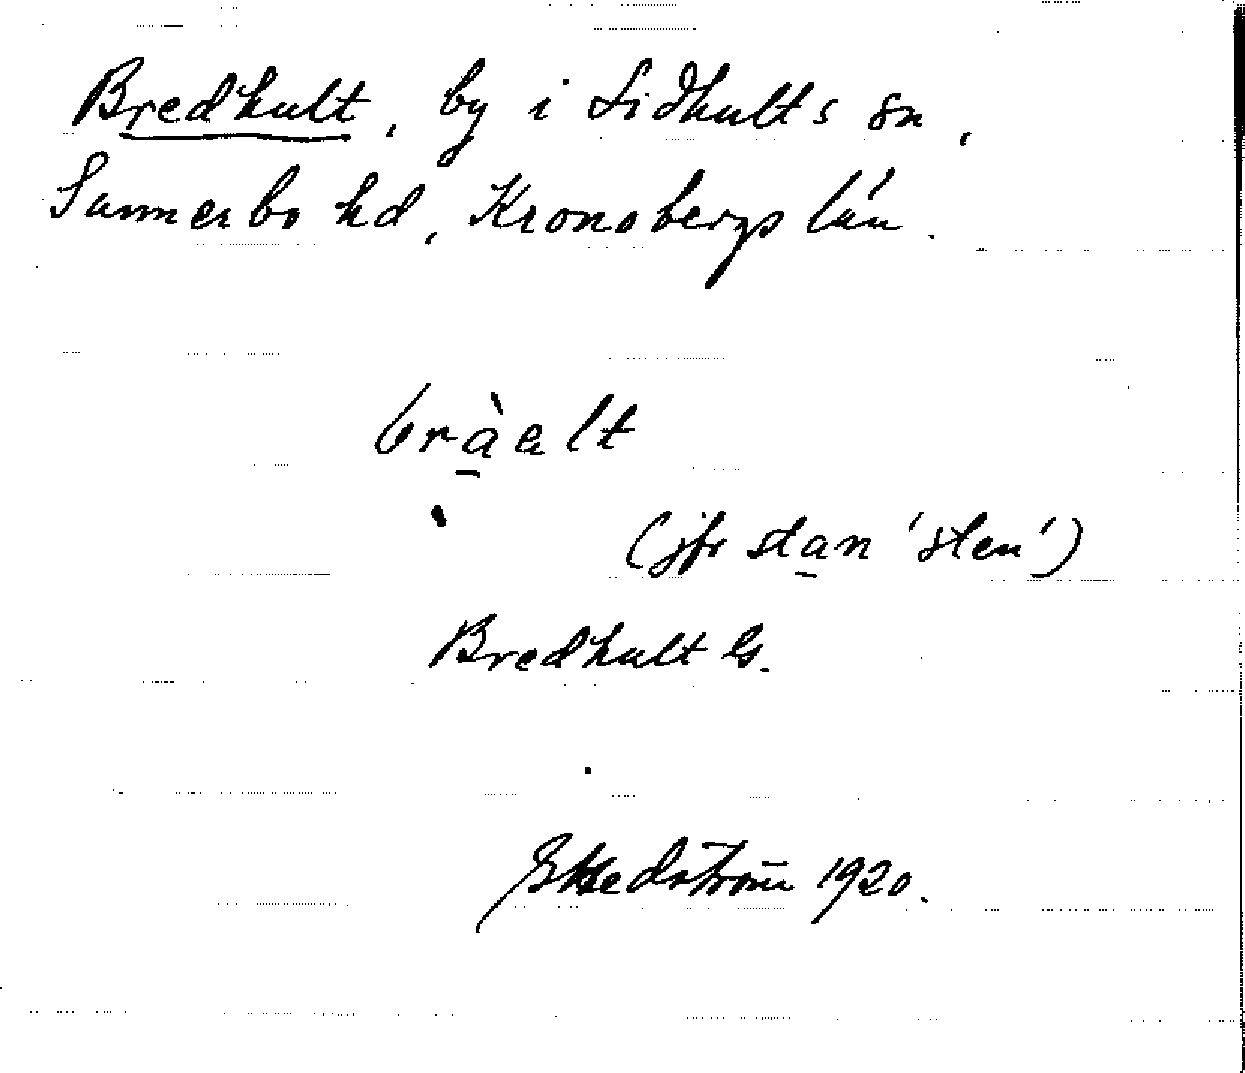 Bredhult, by i Lidhults sn,
Sunnerbo hd, Kronobergs län.
brà̱alt
(jfr sta̱n 'sten')
Bredhult G.
1920.